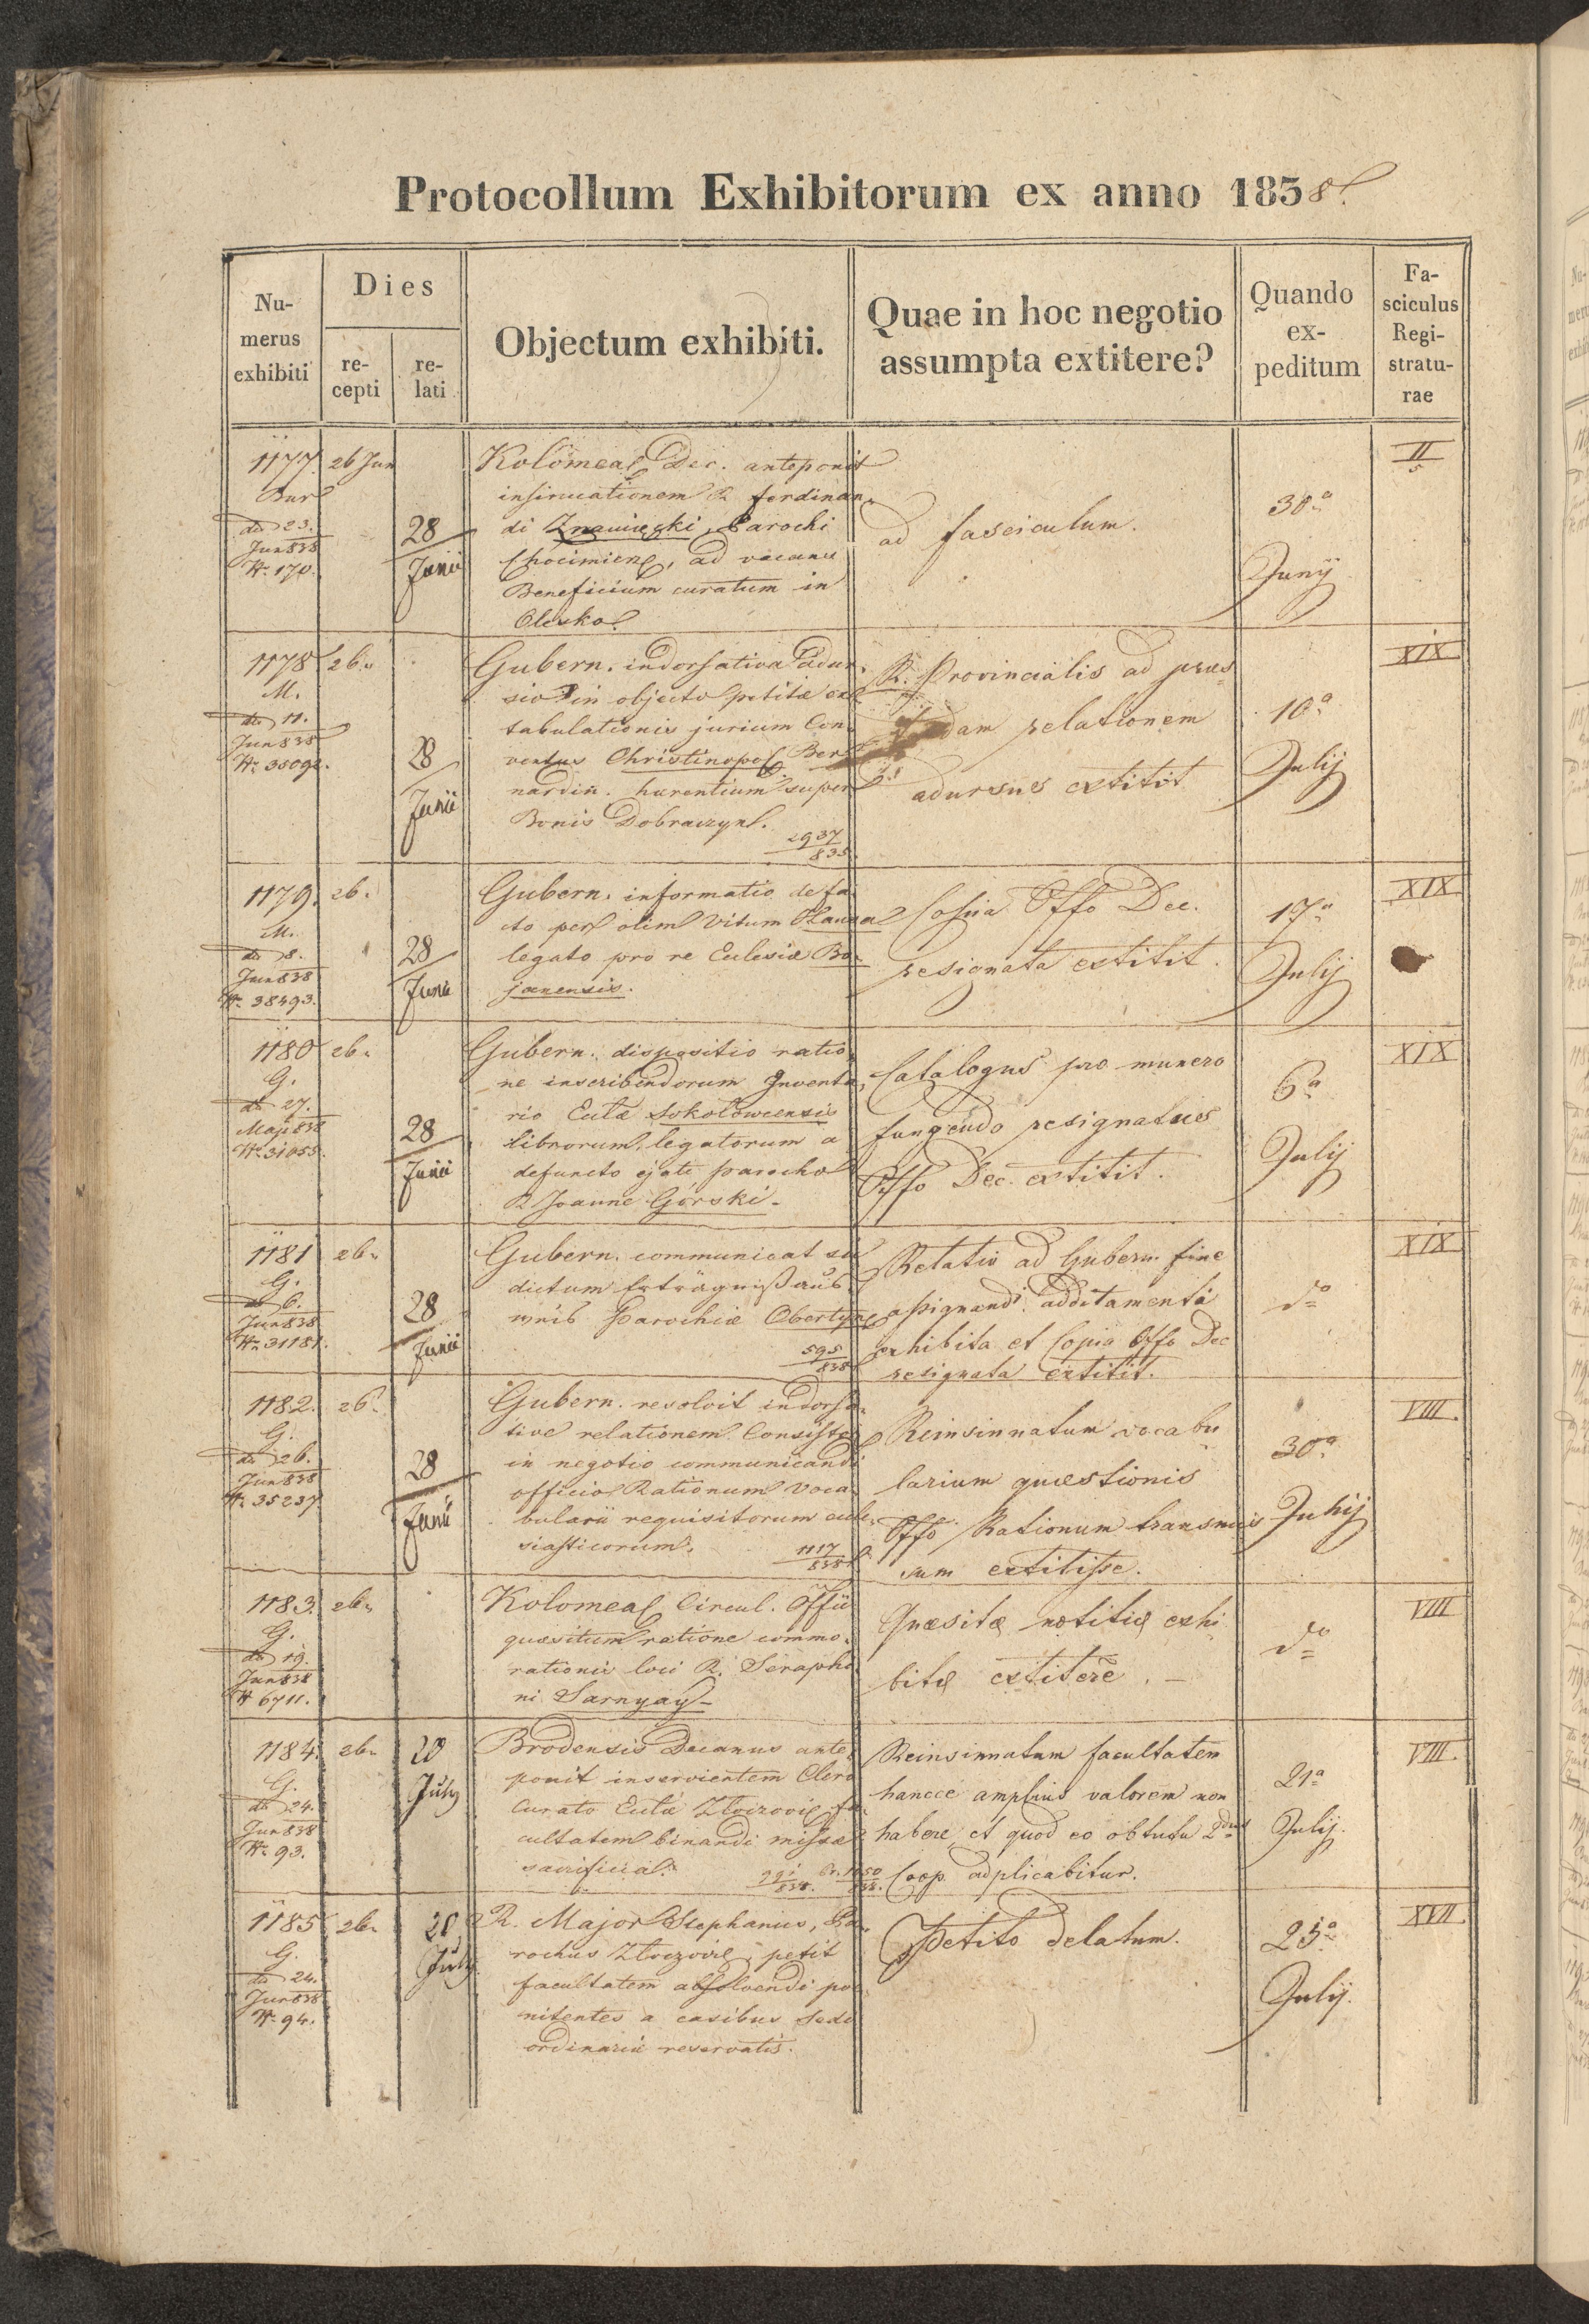 Protocollum Exhibitorum ex anno 1838.
Nu-
merus
exhibiti
Dies
re-
cepti
re-
lati
Objectum exhibiti.
Quae in hoc negotio
assumpta extitere?
Quando
ex-
peditum
Fa-
sciculus
Regi-
stratu-
rae
1177.
dto 23.
Jun 838
Nr. 170.
26 Jun
28
Junii
Kolomeae Dec. anteponit
insinuationem R. Ferdinan-
di Parochi
Chocimiens, ad vacans
Beneficium curatum in
Olesko.
ad fasciculum.
30a
Junij
II
5
1178
M.
dto 11.
Jun 838
Nr. 38092.
26.
28
Junii
Gubern. indorsativa adur-
sio in objecto petitae ex-
tabulationis jurium Con-
ventus Christinopol. Ber-
nardin. haerentium super
Bonis Dobraczyn.
2937
835.
R. Provincialis ad praes-
dam relationem
adursus extitit
10a
Julij
XIX
1179.
M.
dto 8.
Jun 838
Nr. 38493.
26.
28
Junii
Gubern. informatio de fa-
cto per olim Vitum
legato pro re Ecclesiae Bo-
janensis.
Copia Offo Dec.
resignata extitit.
17a
Julij
XIX
1180
G.
dto 27.
Maji 838
Nr. 31055.
26.
28
Junii
Gubern. dispositio ratio-
ne inscribendorum Inventa-
rio Eccltae Sokołowcensis
librorum, legatorum a
defuncto ejate parocho
R. Joanne Górski.
Catalogus pro munere
fungendo resignatus
Offo Dec. extitit.
6a
Julij
XIX
1181
G.
dto 6.
Jun 838
Nr. 31181.
26.
28
Junii
Gubern. communicat su
dictum Erträgnißaus-
weis Parochiae Obertyn
595
838
Relatio ad Gubern. fine
assignandi additamenti
exhibita et Copia Offo Dec
resignata extitit.
do
XIX
1182.
G.
dto 26.
Jun 838
Nr. 35237
26.
28
Junii
Gubern. resolvit indorsa-
tive relationem Consist.
in negotio communicandi
officio Rationum voca-
bularii requisitorum eccle-
siasticorum.
1117
838
Reinsinuatum vocabu
larium quaestionis
Offo Rationum transmis
sum extitisse.
30a
Julij
VIII.
1183.
G.
dto 19.
Jun 838
Nr 6711.
26.
Kolomeae Circul. Offii
quaesitum ratione commo-
rationis loci R. Seraphi-
ni Sarnyay
Quaesitae notitiae exhi
bitae extitere. —
do
VIII
1184.
G.
dto 24.
Jun 838
Nr. 93.
26.
20
July
Brodensis Decanus ante-
ponit inservientem Clero
Curato Ecclae Złoczoviens fa-
cultatem binandi missae
sacrificia.
991
838.
Pr. 1050
838.
Reinsinuatum facultatem
hancce amplius valorem non
habere, et quod eo obtutu 2dus
Coop. adplicabitur.
21a
Julij.
VIII.
1185
G.
dto 24.
Jun 838
Nr. 94.
26.
20
July
R. Major Stephanus, Pa-
rochus Złoczoviens petit
facultatem absolvendi poe-
nitentes a casibus Sedi
ordinariae reservatis.
Petito delatum.
25a
Julij.
XVII.